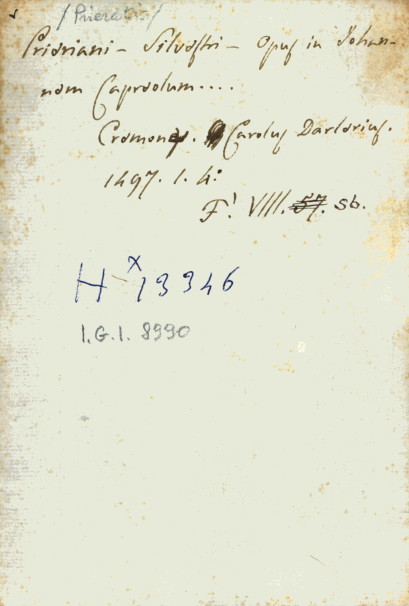 /Prieratis/
Prieriani - Silvestri - Opus in Johan-
nem Capreolum....
Cremones. Carolus Darlerius.
1497. 1. 4:
F! VIII. 57. Sb.
H x 13346
I.G.I. 8990